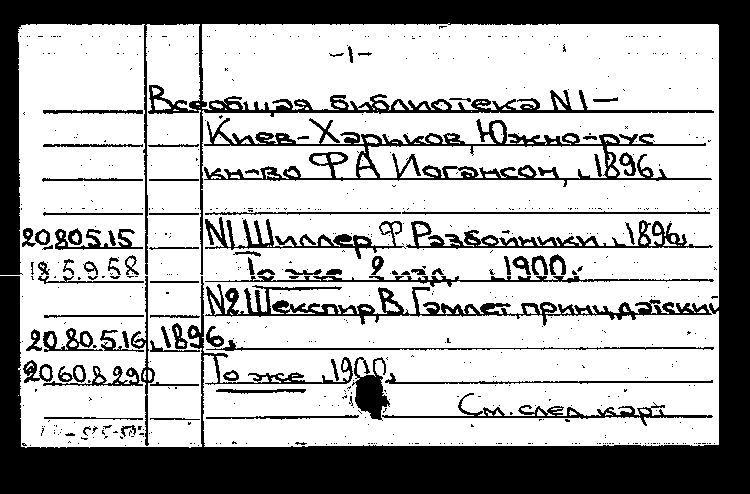 -1-
Всеобщая библиотека N1-
Киев-Харьков, Южно-рус
кн-во Ф.А Иогансон, [1896]
20.80.5.15 N1. Шиллер, Ф. Разбойники. [1896].
18.5.9.58 То же. 2 изд. [1900].
N2. Шекспир, В. Гамлет, принц датский
20.80.5.16 [1896].
20.60.8.290. То же [1900].
См. след. карт